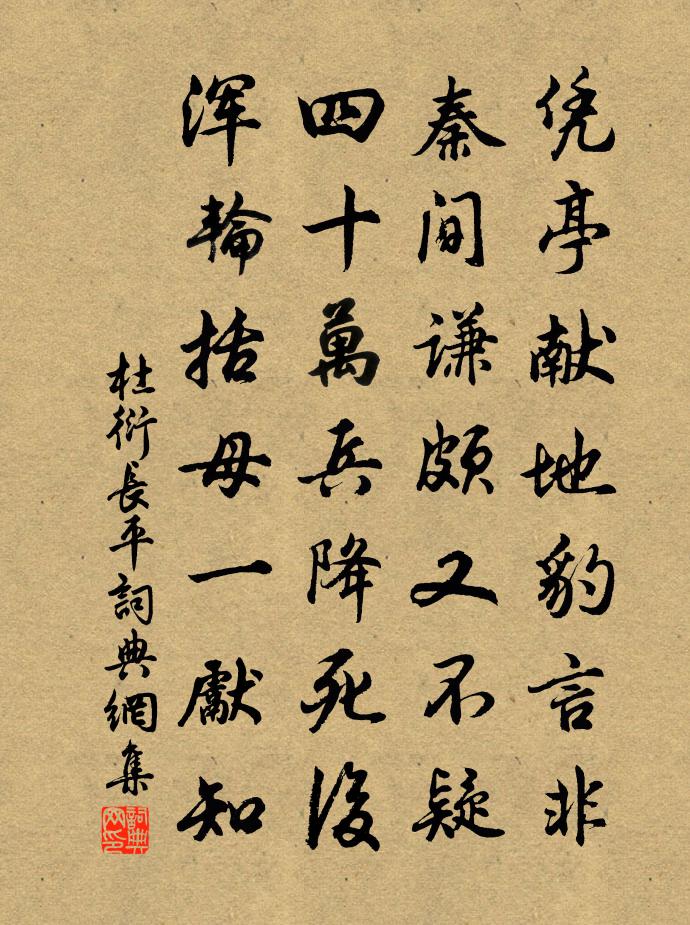 凭亭献地豹言非
秦间谦颇又不疑
四十萬兵降死後
浑輪括母一獻知
杜衍長平詞典網集
詞典网印